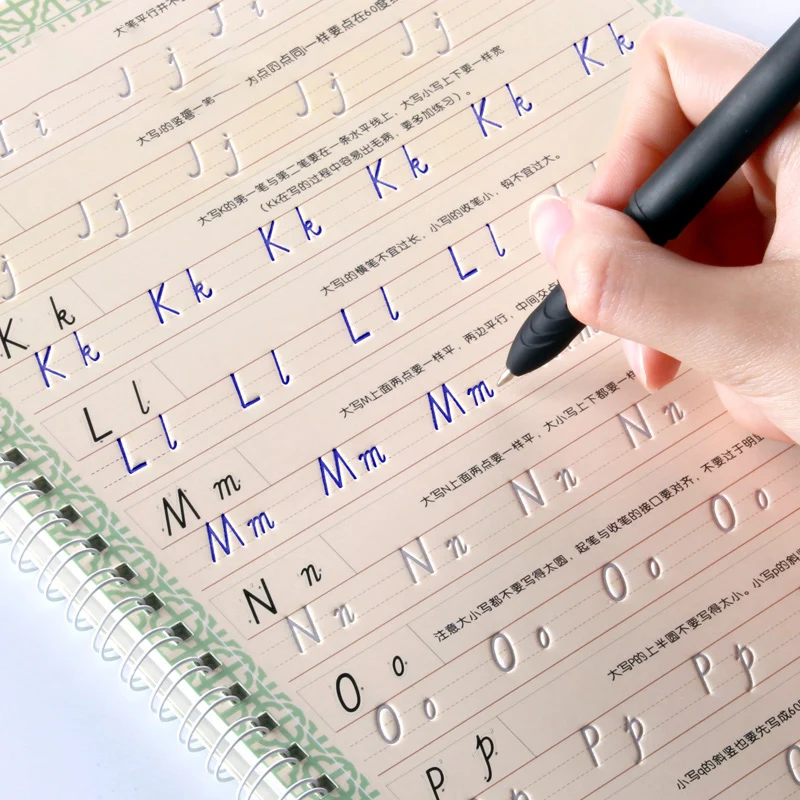 I i
J j J j J j J j
大写K的第一笔与第二笔要在一条水平线上，大写小写上下要一样宽
（Kk在写的过程中容易出毛病，要多加练习）。
K k
K k K k K k K k K k K k
大写L的横笔不宜过长，小写l的收笔小，钩不宜过大。
L l
L l L l L l L l
大写M上面两点要一样平，两边平行，中间交点
M m
M m M m M m
大写N上面两点要一样平，大小写上下都要一样
N n
N n N n N n N n
注意大小写都不要写得太圆，起笔与收笔的接口要对齐，不要过于明
O o
O o O o O o O o
大写P的上半圆不要写得太小。小写p的斜
P p
P p P p
小写q的斜竖也要先写成60